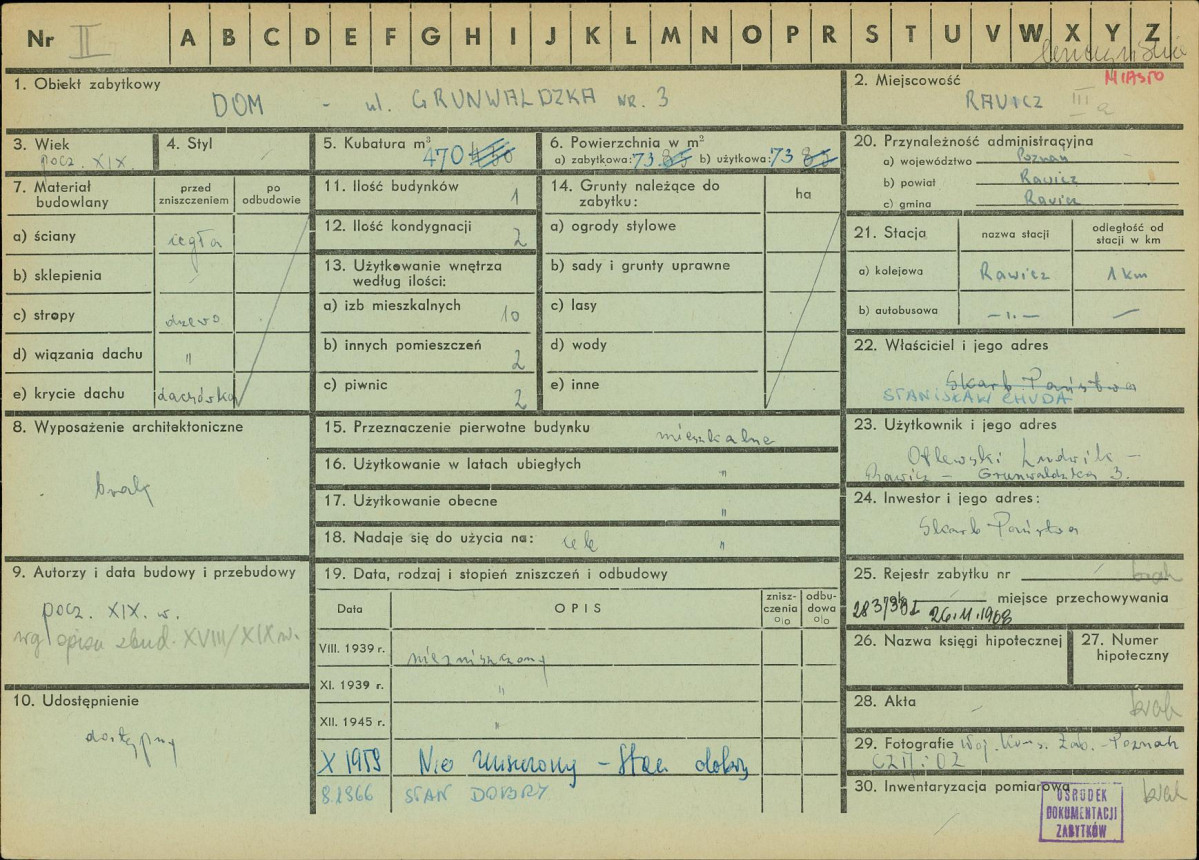 Nr II A B C D E F G H I J K L M N O P R S T U V W X Y Z
1. Obiekt zabytkowy
DOM - ul. GRUNWALDZKA NR. 3
2. Miejscowość
MIASTO
RAWICZ III a
3. Wiek
pocz. XIX.
4. Styl
5. Kubatura m³
470
6. Powierzchnia w m²
a) zabytkowa: 73 85 b) użytkowa: 73 85
7. Materiał budowlany
przed zniszczeniem
po odbudowie
a) ściany cegła
b) sklepienia
c) stropy drzewo
d) wiązania dachu "
e) krycie dachu dachówka
8. Wyposażenie architektoniczne
brak
9. Autorzy i data budowy i przebudowy
pocz. XIX. w.
wg opisu zbud. XVIII/XIX w.
10. Udostępnienie
dostępny
11. Ilość budynków 1
12. Ilość kondygnacji 2
13. Użytkowanie wnętrza
według ilości:
a) izb mieszkalnych 10
b) innych pomieszczeń 2
c) piwnic 2
14. Grunty należące do
zabytku:
ha
a) ogrody stylowe
b) sady i grunty uprawne
c) lasy
d) wody
e) inne
15. Przeznaczenie pierwotne budynku mieszkalne
16. Użytkowanie w latach ubiegłych "
17. Użytkowanie obecne "
18. Nadaje się do użycia na: cele "
19. Data, rodzaj i stopień zniszczeń i odbudowy
Data
OPIS
znisz-
czenia
%
odbu-
dowa
%
VIII. 1939 r. niezniszczony
XI. 1939 r. "
XII. 1945 r. "
X 1959 Nie zniszczony - Stan dobry
8.1966 STAN DOBRY
20. Przynależność administracyjna
a) województwo Poznań
b) powiat Rawicz
c) gmina Rawicz
21. Stacja
nazwa stacji
odległość od
stacji w km
a) kolejowa Rawicz 1 km
b) autobusowa - " - —
22. Właściciel i jego adres
Skarb Państwa
STANISŁAW CHUDA
23. Użytkownik i jego adres
Ludwik -
Rawicz - Grunwaldzka 3.
24. Inwestor i jego adres:
Skarb Państwa
25. Rejestr zabytku nr brak
miejsce przechowywania
26.11.1968
26. Nazwa księgi hipotecznej
27. Numer
hipoteczny
28. Akta brak
29. Fotografie Woj. Kons. Zab. - Poznań
CZII: OZ
30. Inwentaryzacja pomiarowa brak
OŚRODEK
DOKUMENTACJI
ZABYTKÓW